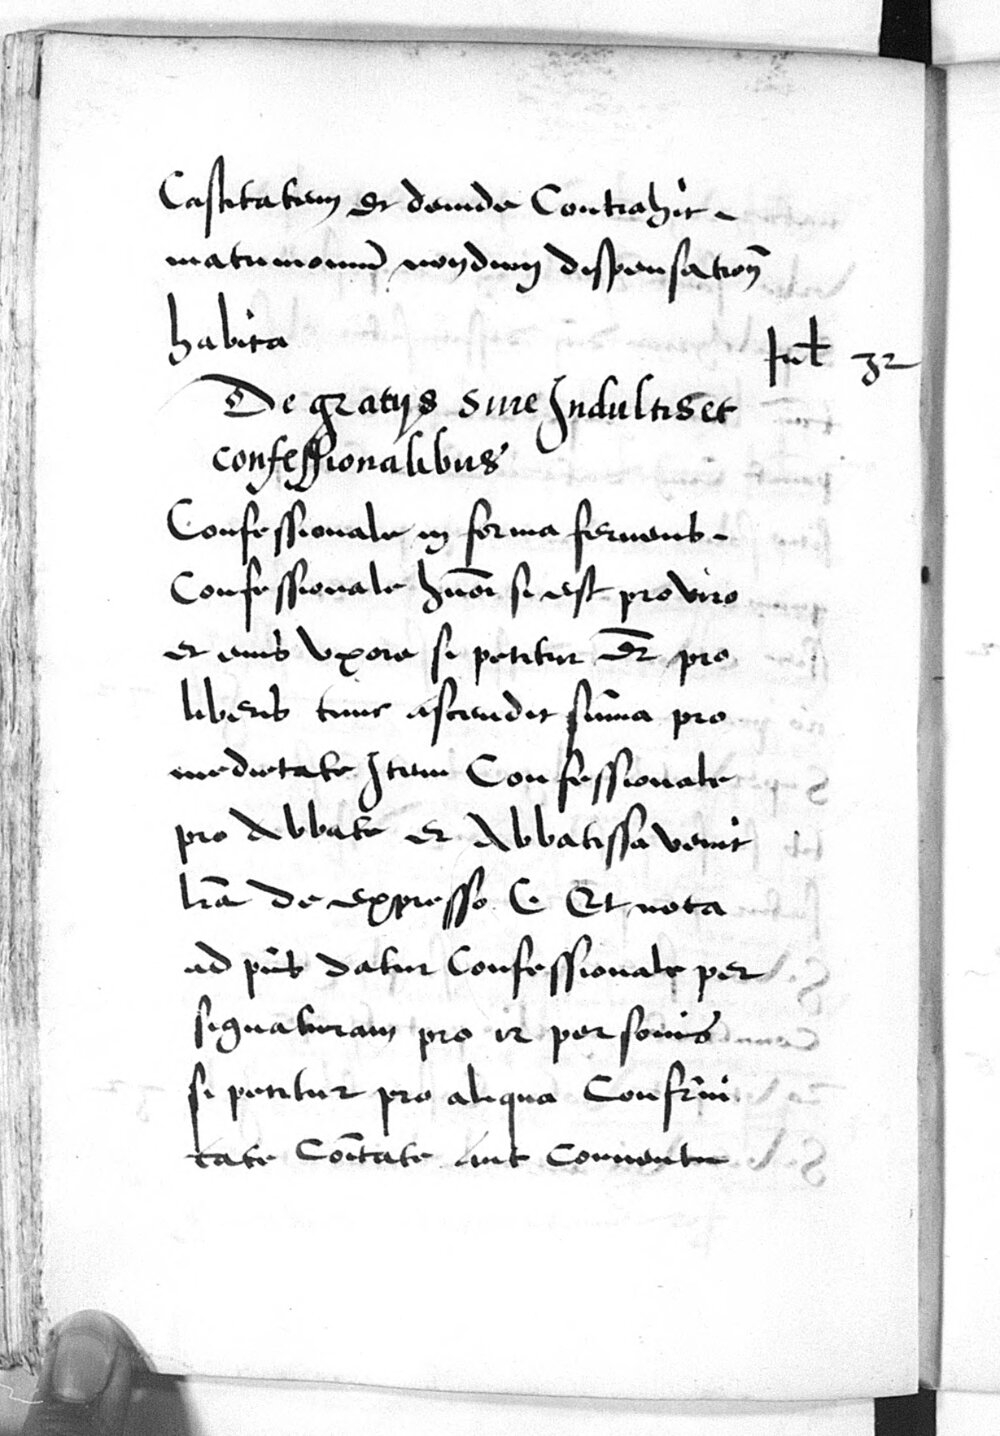 Castitatem et deinde Contrahit
matrimoniũ nondum dispensation̄
habita
Jul 32
De gratijs siue Indultis et
confessionalibus
Confessionale in forma feruentis
Confessionale hm̃oi si est pro viro
et eius vxore si petitur Et̃ pro
liberis tunc ascendit sum̃a pro
medietate Item Confessionale
pro Abbate et Abbatissa venit
lr̃a de expresso C Et nota
ad pñs datur Confessionale per
signaturam pro ix personis
si petitur pro aliqua Confrñi
tate Cõitate aut Conuentu